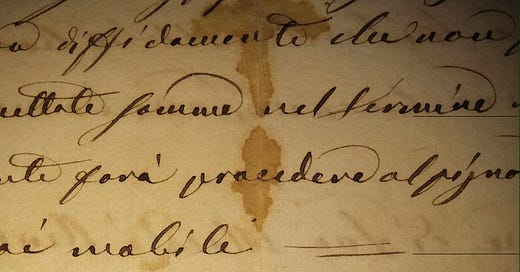 diffidamente che non
somme nel termine
farà procedere al pigno
mobili